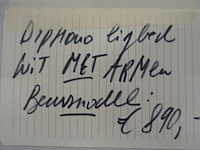 Diphano ligbed
WiT MET ARMen
Beursmodel:
€ 890,-